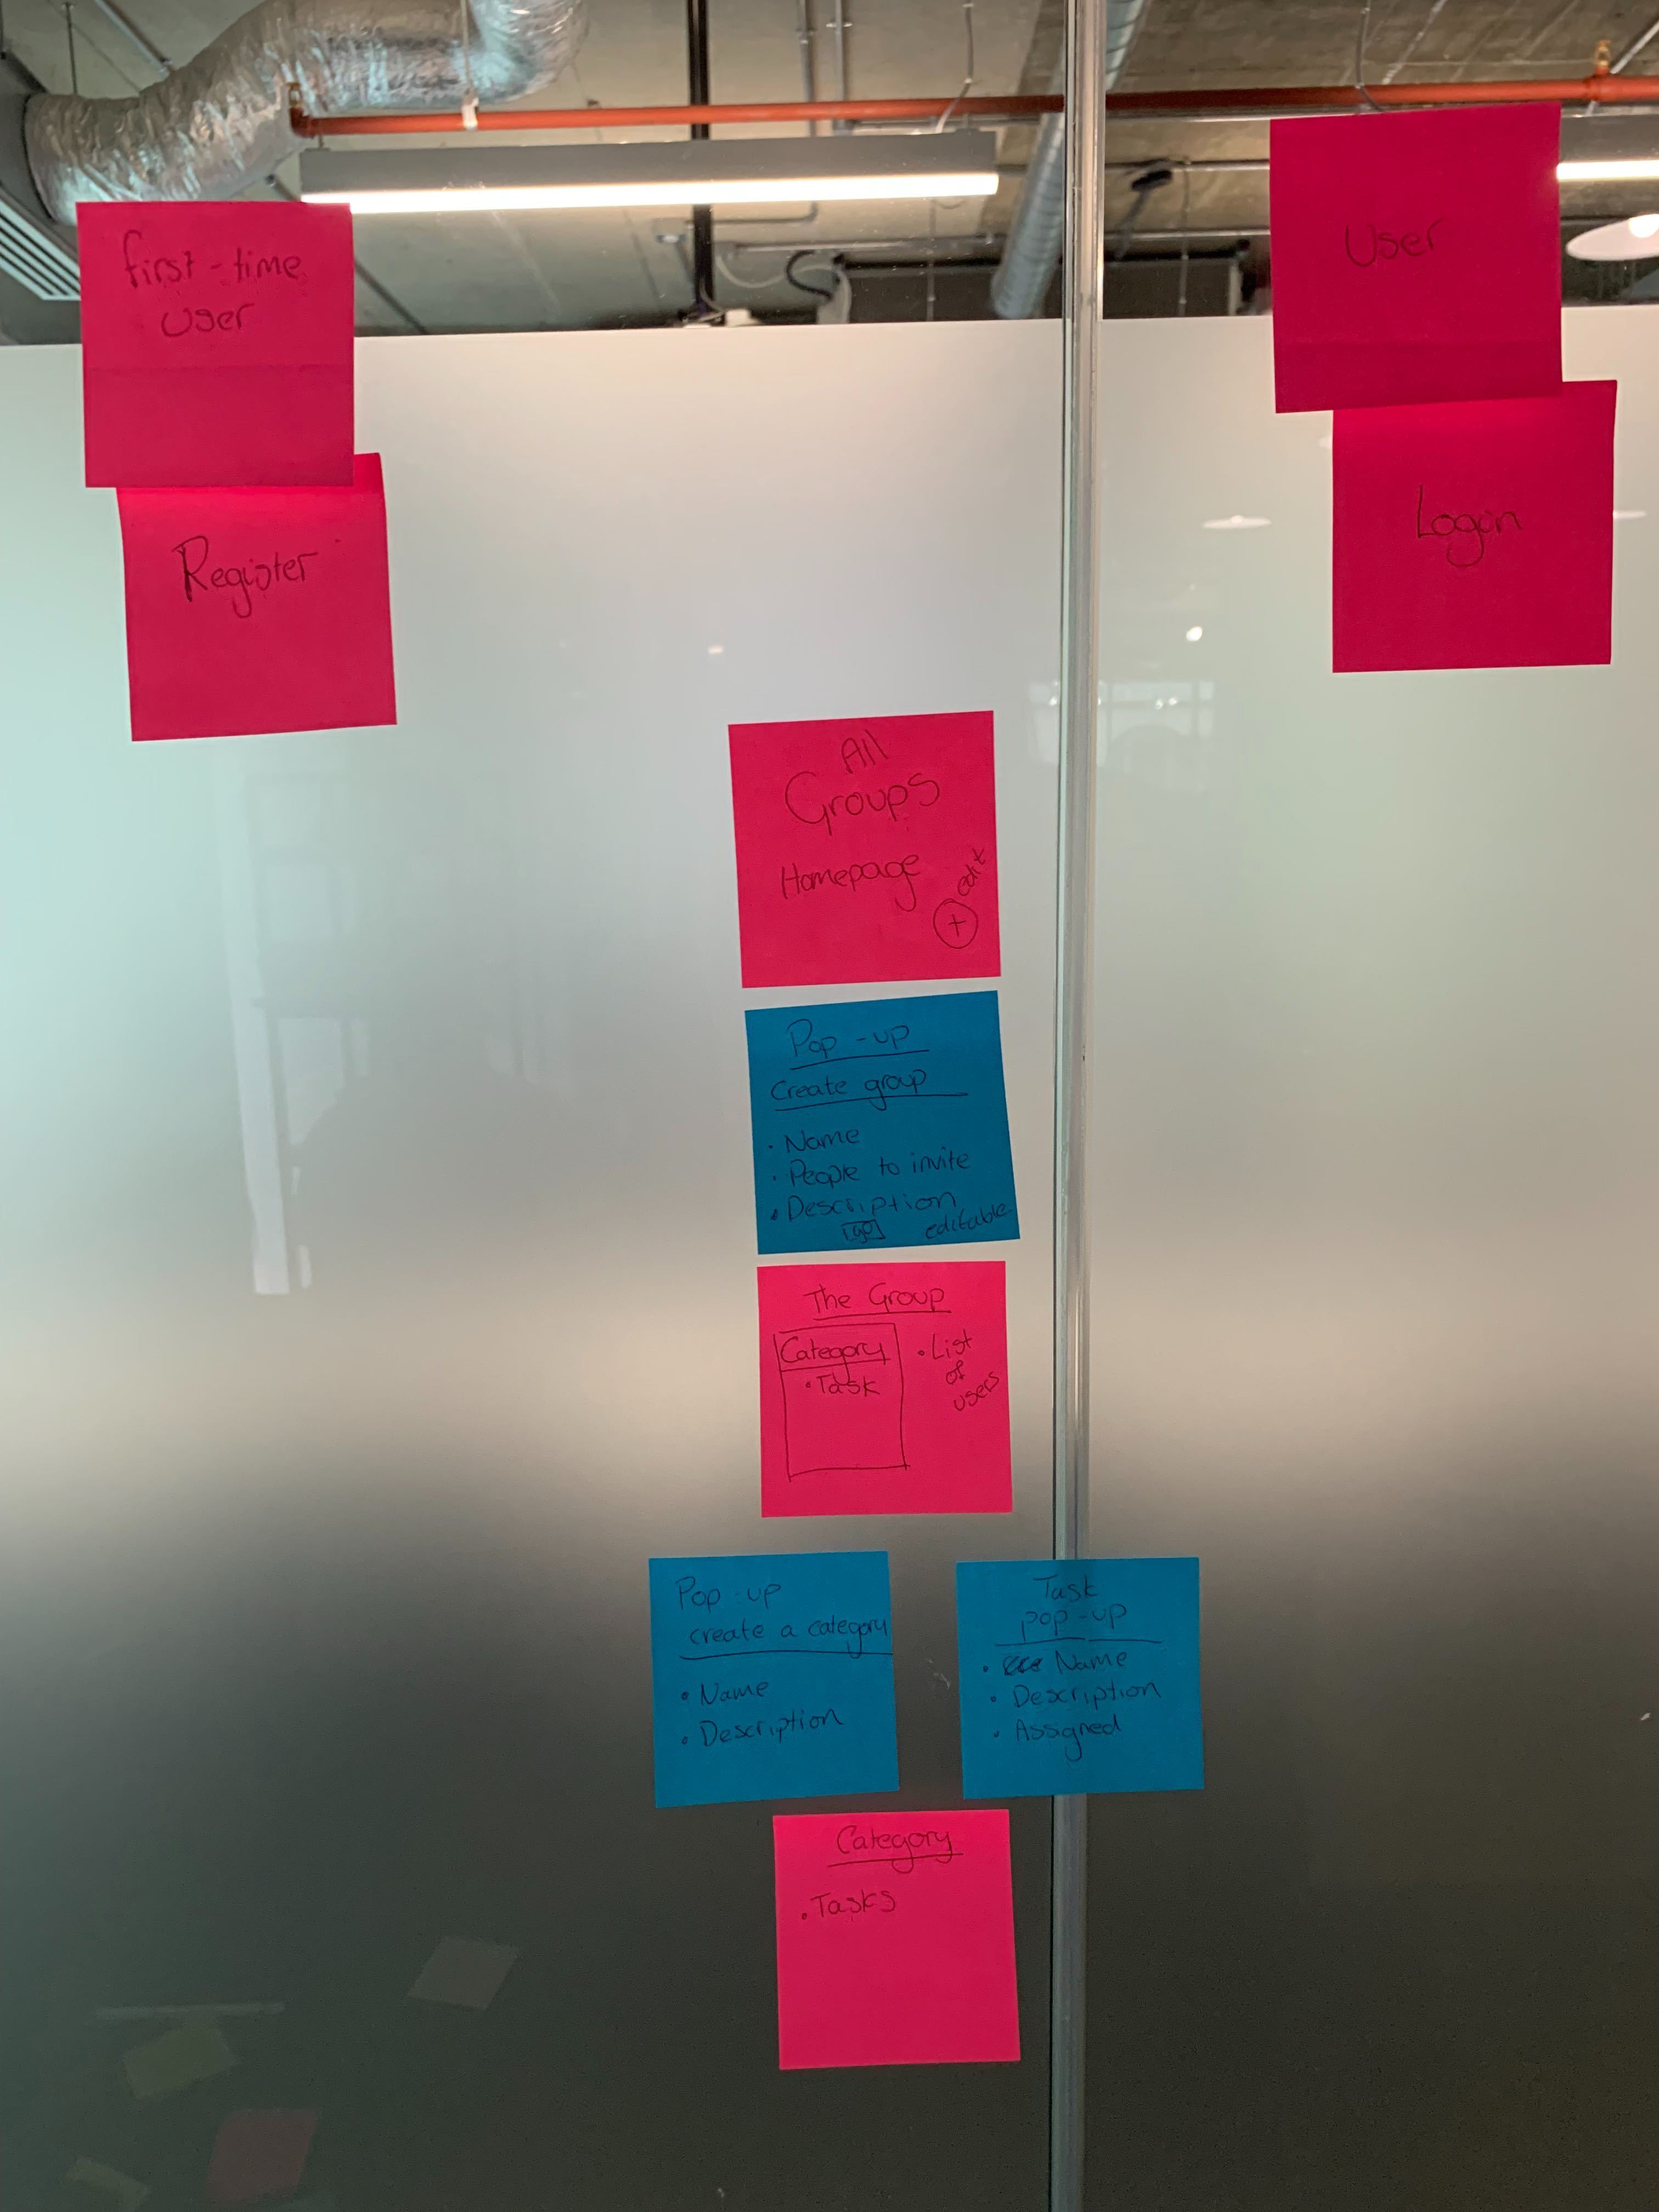 first-time
user
Register
User
Login
All
Groups
Homepage
edit
+
Pop-up
Create group
• Name
• People to invite
• Description
go
editable
The Group
Category
• Task
• List
of
users
Pop-up
create a category
• Name
• Description
Task
pop-up
• Name
• Description
• Assigned
Category
• Tasks